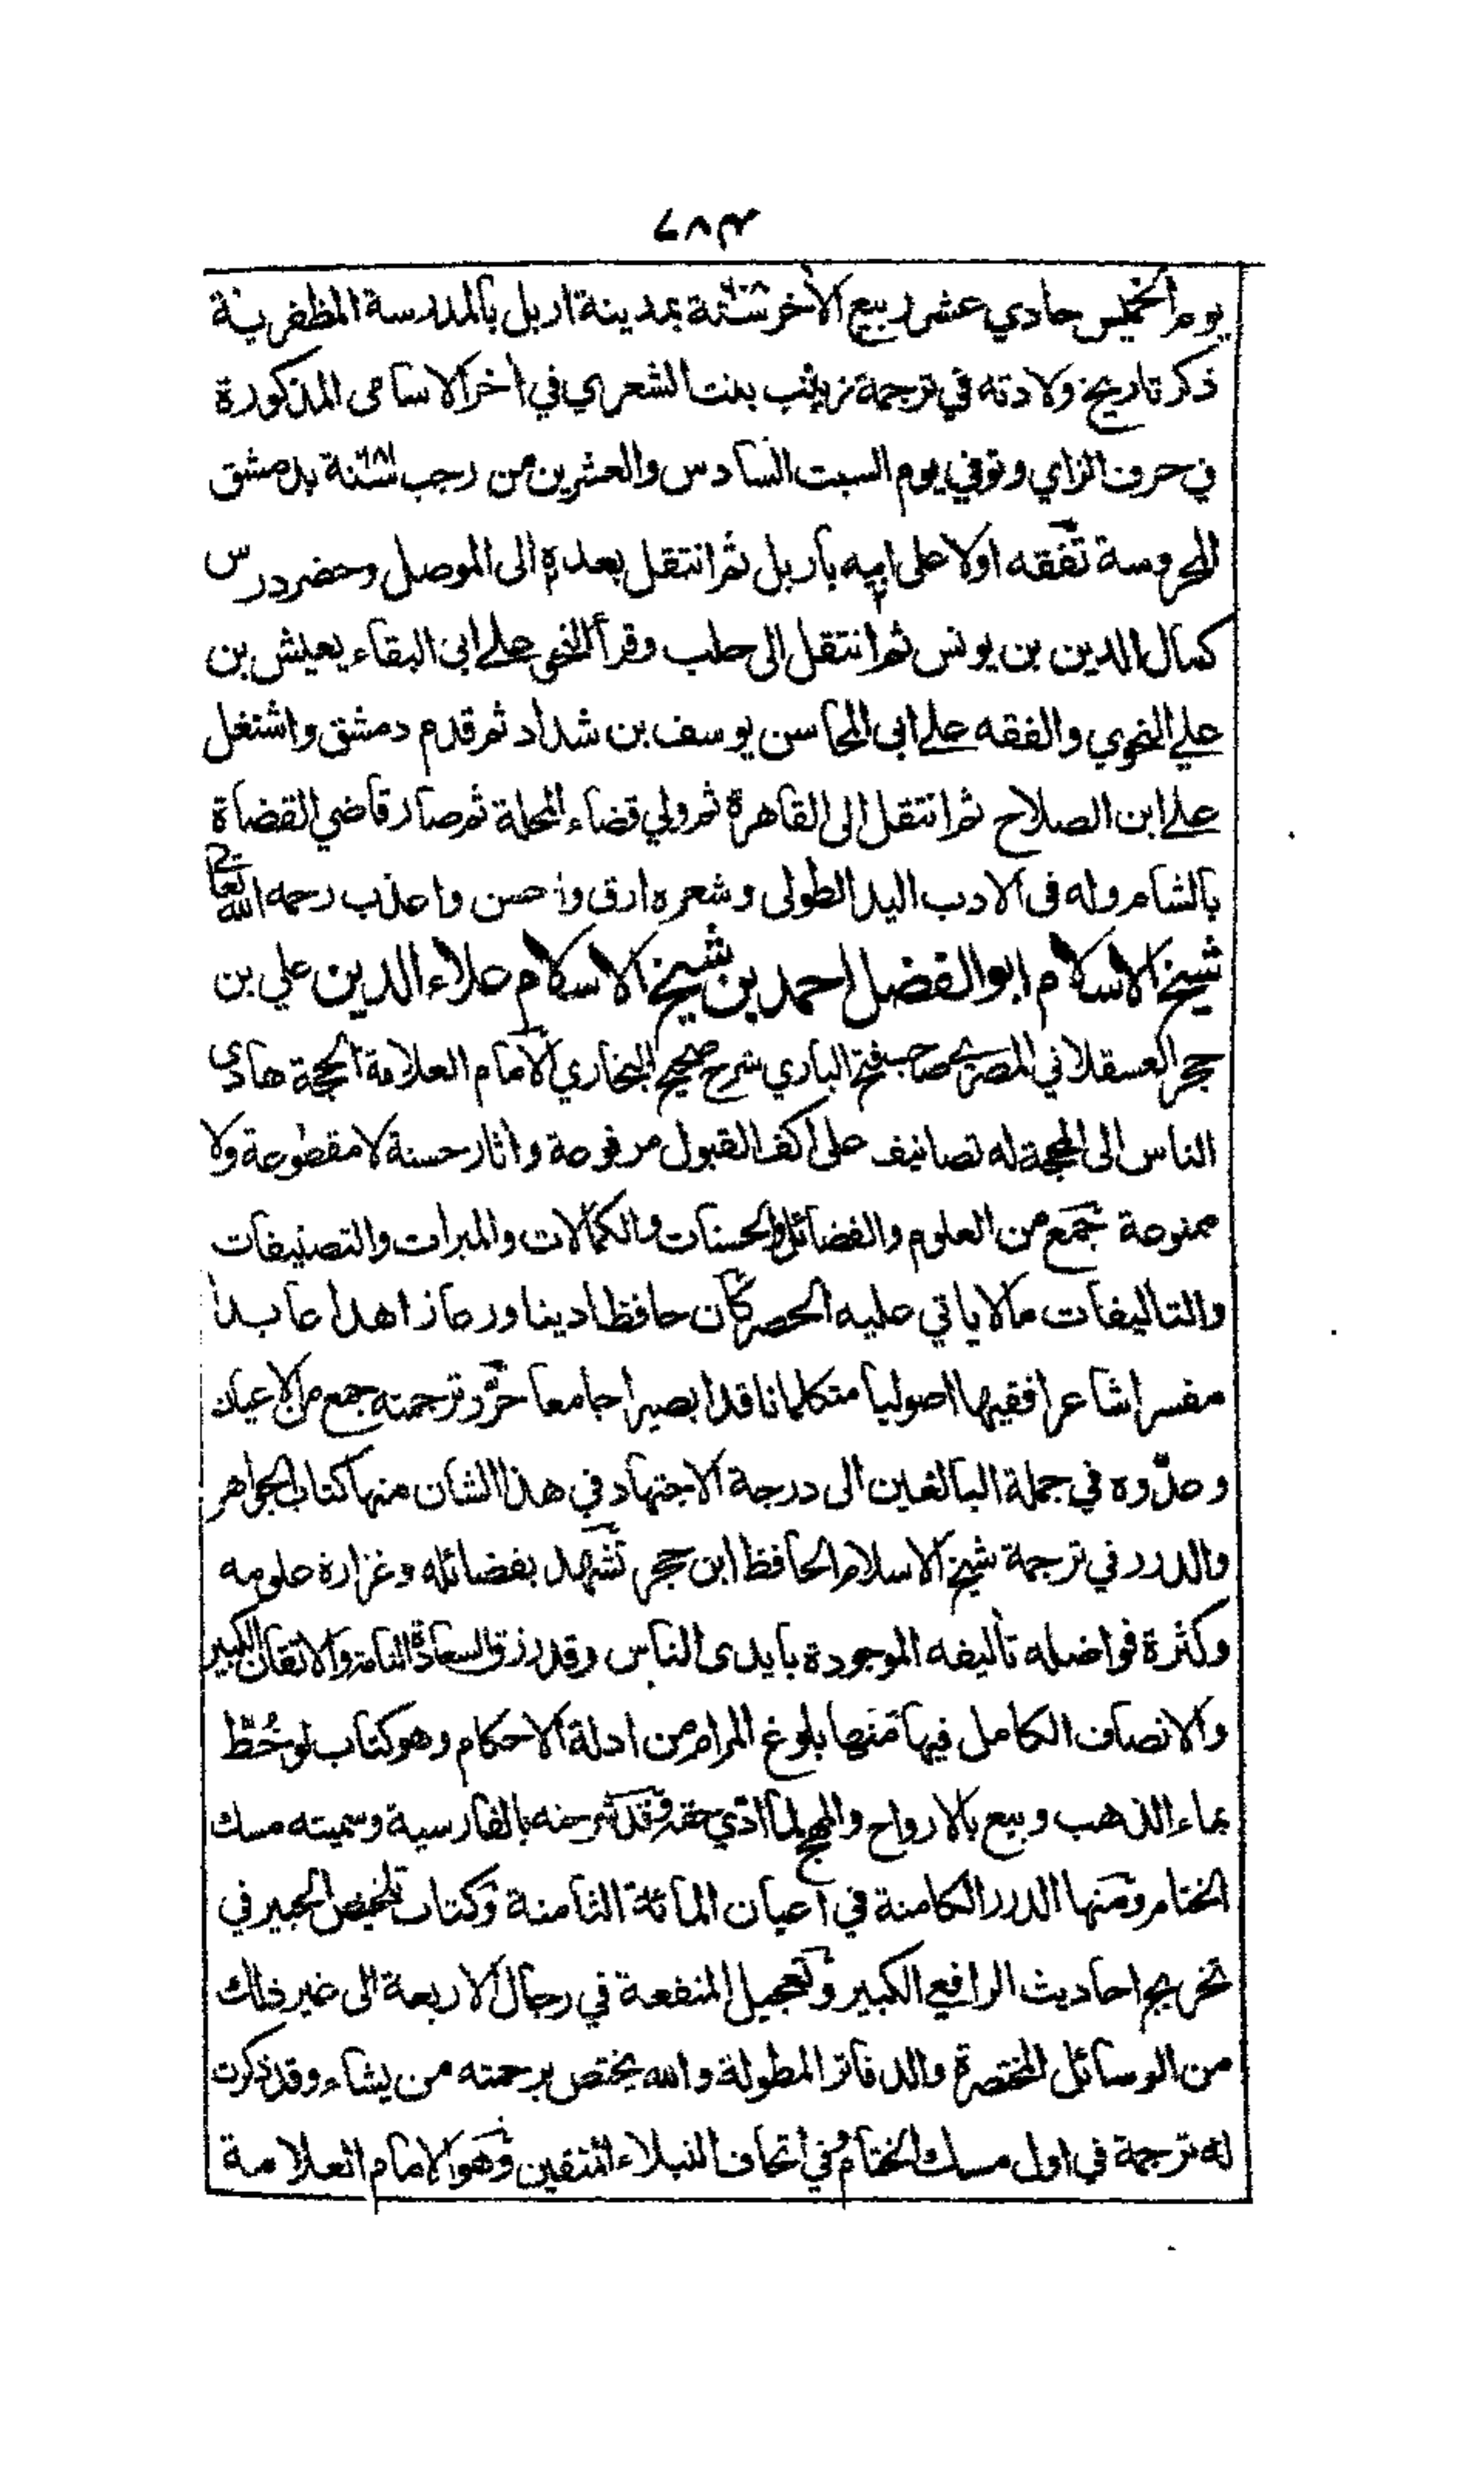 ٧٨٣
يوم الخميس حادي عشر ربيع الآخر سنة ٦٠٨ بمدينة اربل بالمدرسة المظفرية
ذكر تاريخ ولادته في ترجمة زينب بنت الشعري في أخر الاسامى المذكورة
في حرف الزاي وتوفي يوم السبت السادس والعشرين من رجب سنة ٦٨١ بدمشق
المحروسة تفقه اولا على ابيه باربل ثم انتقل بعده الى الموصل وحضر درس
كمال الدين بن يونس ثم انتقل الى حلب وقرأ النحو على ابى البقاء يعيش بن
علي النحوي والفقه على ابى المحاسن يوسف بن شداد ثم قدم دمشق واشتغل
على ابن الصلاح ثم انتقل الى القاهرة ثم ولي قضاء المحلة ثم صار قاضي القضاة
بالشام وله فى الادب اليد الطولى وشعره ارق واحسن واعذب رحمه الله تعالى
شيخ الاسلام ابو الفضل احمد بن شيخ الاسلام علاء الدين علي بن
حجر العسقلاني المصري صاحب فتح الباري شرح صحيح البخاري الامام العلامة الحجة هادى
الناس الى المحجة له تصانيف على اكف القبول مرفوعة واثار حسنة لا مقطوعة ولا
ممنوعة جمع من العلوم والفضائل والحسنات والكمالات والمبرات والتصنيفات
والتاليفات مالا ياتي عليه الحصر كان حافظا دينا ورعا زاهدا عابدا
مفسرا شاعرا فقيها اصوليا متكلما ناقدا بصيرا جامعا حرر ترجمته جمع من الاعيان
وعدّوه في جملة البالغين الى درجة الاجتهاد في هذا الشان منها كتاب الجواهر
والدرر في ترجمة شيخ الاسلام الحافظ ابن حجر تشهد بفضائله وغزارة علومه
وكثرة فواضله تأليفه الموجودة بايدى الناس وقد رزق السعادة التامة والاتقان الكبير
والانصاف الكامل فيها منها بلوغ المرام من ادلة الاحكام وهو كتاب لو خُطّ
بماء الذهب وبيع بالارواح والمهج لما ادّي حقه وقد شرحته بالفارسية وسميته مسك
الختام ومنها الدرر الكامنة في اعيان المائة الثامنة وكتاب تلخيص الحبير في
تخريج احاديث الرافعي الكبير وتعجيل المنفعة في رجال الاربعة الى غير ذلك
من الرسائل المختصرة والدفاتر المطولة والله يختص برحمته من يشاء وقد ذكرت
له ترجمة في اول مسك الختام وفي اتحاف النبلاء المتقين وهو الامام العلامة